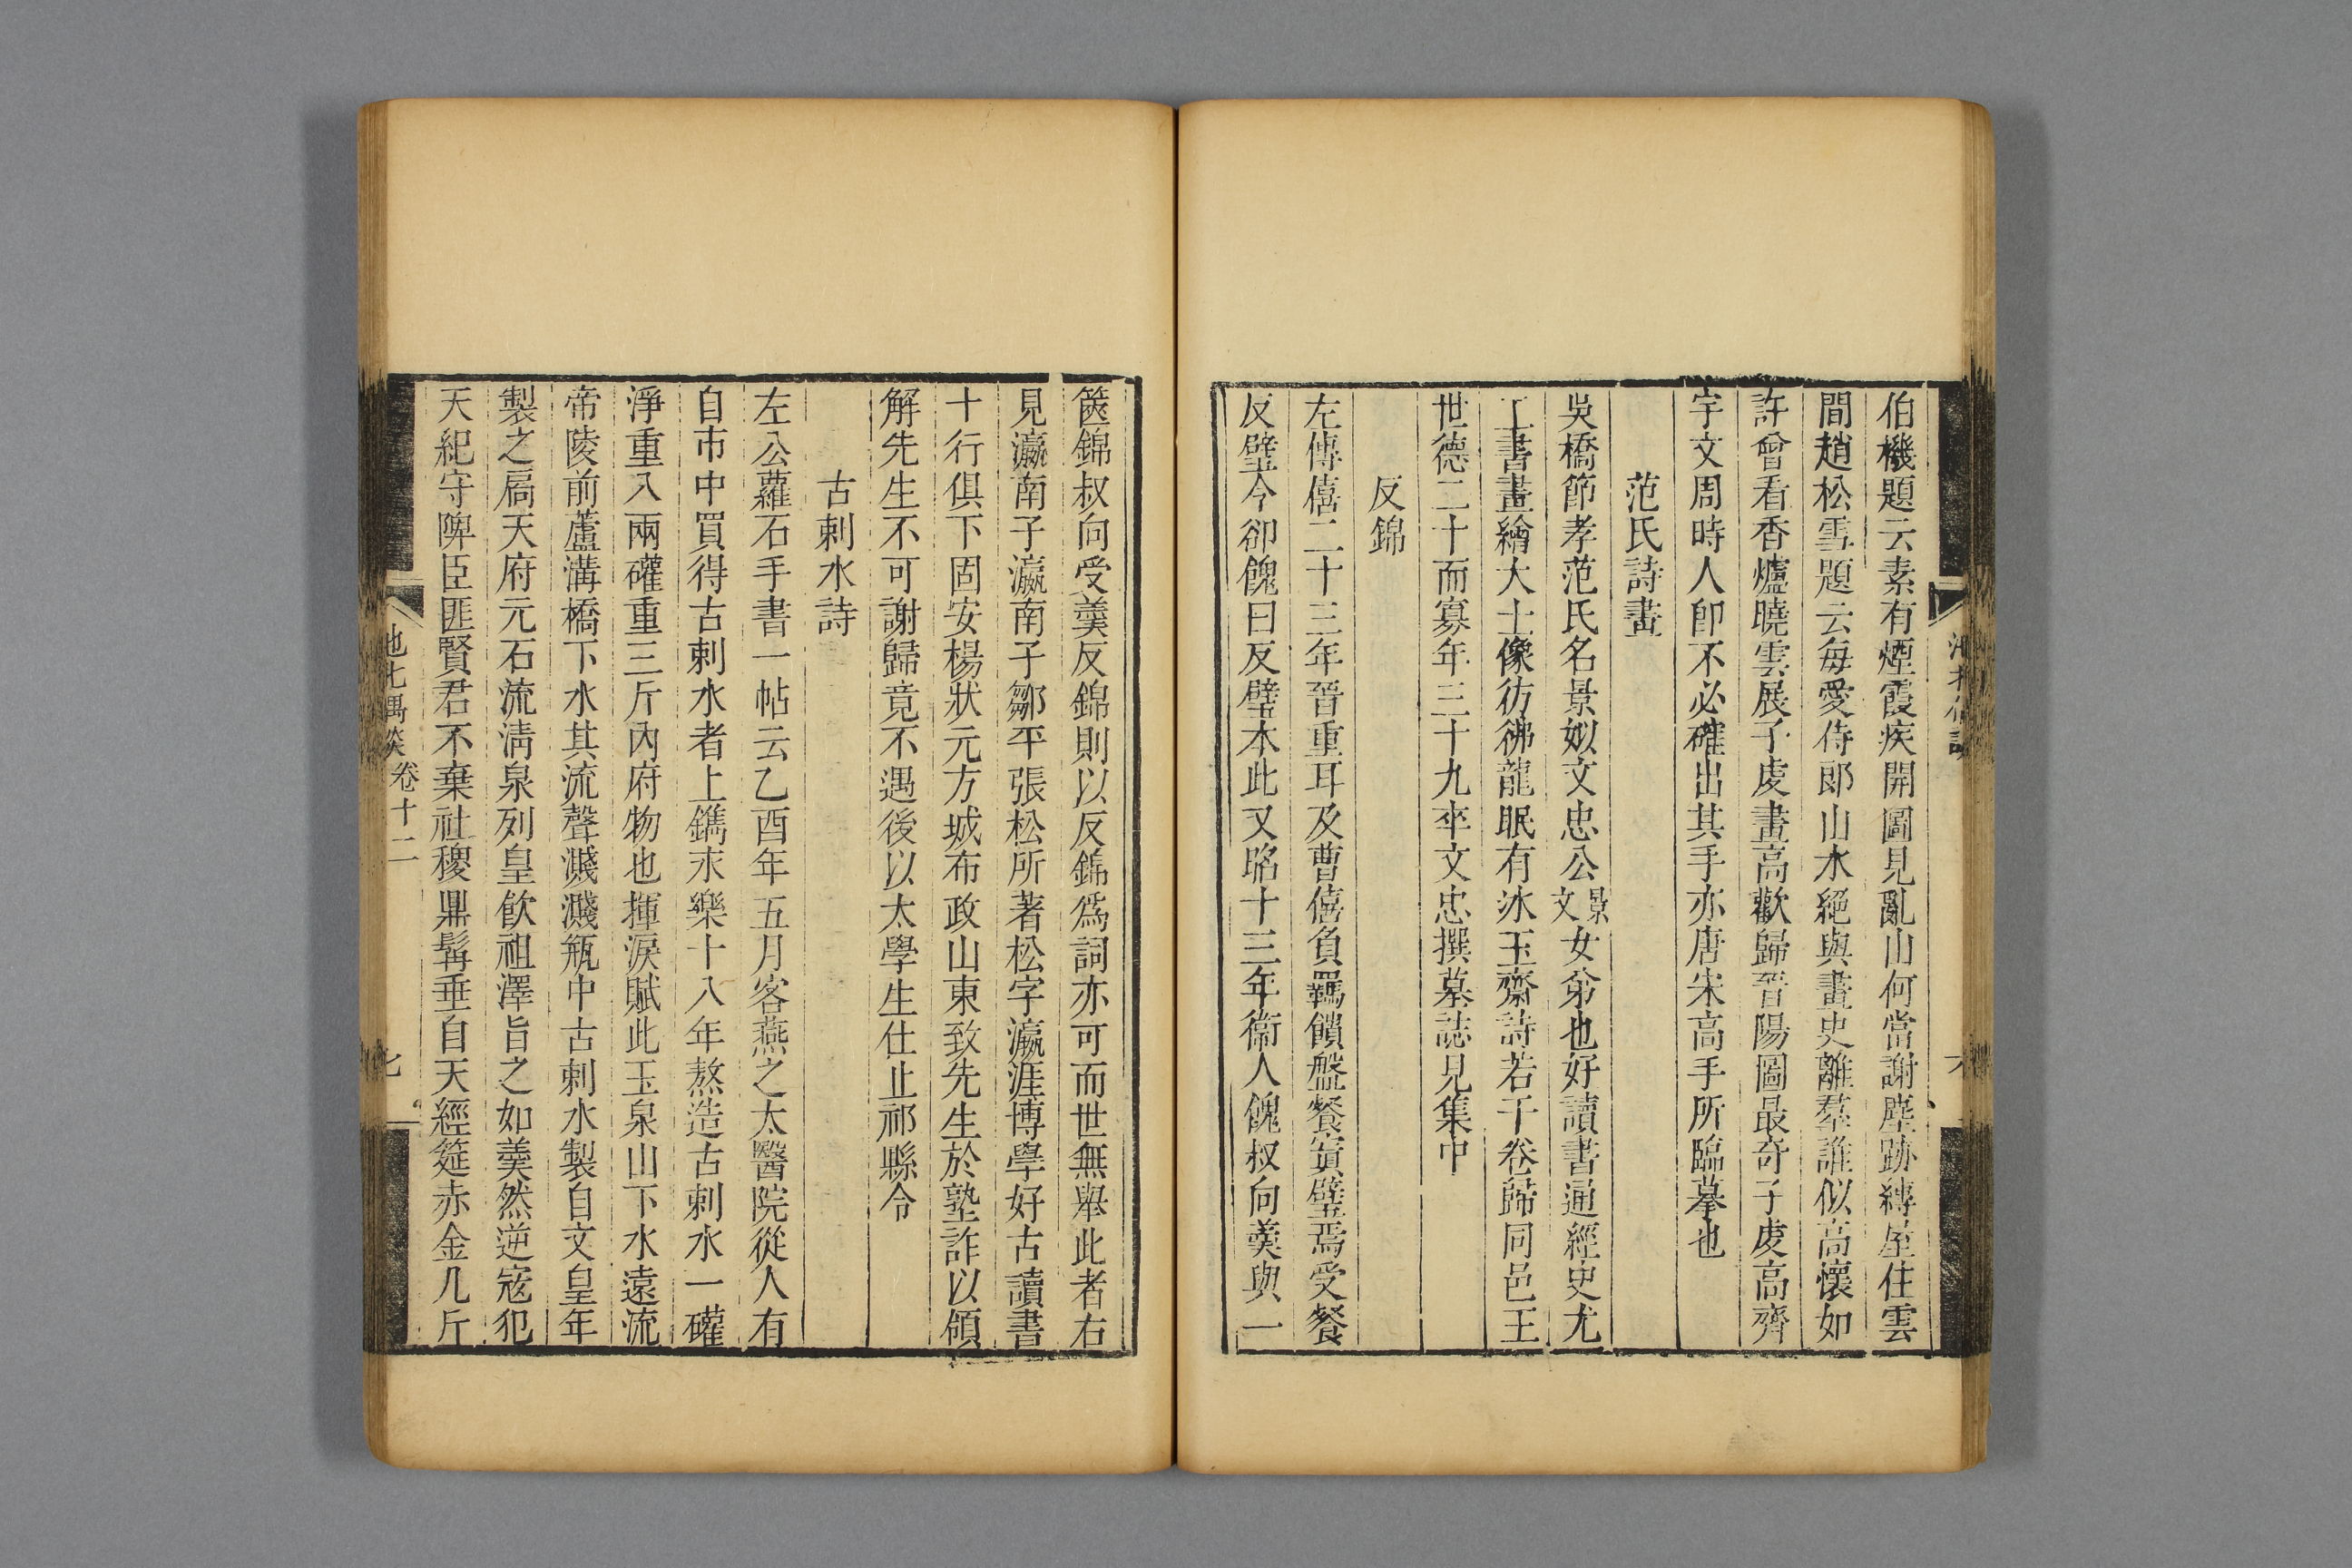 伯機題云素有煙霞疾開圖見亂山何當謝塵跡縳屋住雲
間趙松雪題云每愛侍郎山水絕與畫史離羣誰似高懷如
許曾看香爐曉雲展子虔畫高歡歸晉陽圖最奇子虔高齊
宇文周時人卽不必確出其手亦唐宋高手所臨摹也
范氏詩畫
吳橋節孝范氏名景姒文忠公景文女弟也好讀書通經史尤
工書畫繪大士像彷彿龍眠有氷玉齋詩若干卷歸同邑王
世德二十而寡年三十九卒文忠撰墓誌見集中
反錦
左傳僖二十三年晉重耳及曹僖負羈饋盤餐寘璧焉受餐
反璧今卻餽曰反璧本此又昭十三年衞人餽叔向羹與一
篋錦叔向受羹反錦則以反錦爲詞亦可而世無舉此者右
見瀛南子瀛南子鄒平張松所著松字瀛涯博學好古讀書
十行俱下固安楊狀元方城布政山東致先生於塾詐以領
解先生不可謝歸竟不遇後以太學生仕止祁縣令
古剌水詩
左公蘿石手書一帖云乙酉年五月客燕之太醫院從人有
自市中買得古剌水者上鐫永樂十八年熬造古剌水一礶
淨重八兩礶重三斤內府物也揮淚賦此玉泉山下水遠流
帝陵前蘆溝橋下水其流聲濺濺瓶中古剌水製自文皇年
製之扃天府元石流淸泉列皇飮祖澤旨之如羹然逆寇犯
天紀守陴臣匪賢君不棄社稷鼎髯垂自天經筵赤金几斤
池北偶談 卷十二 七